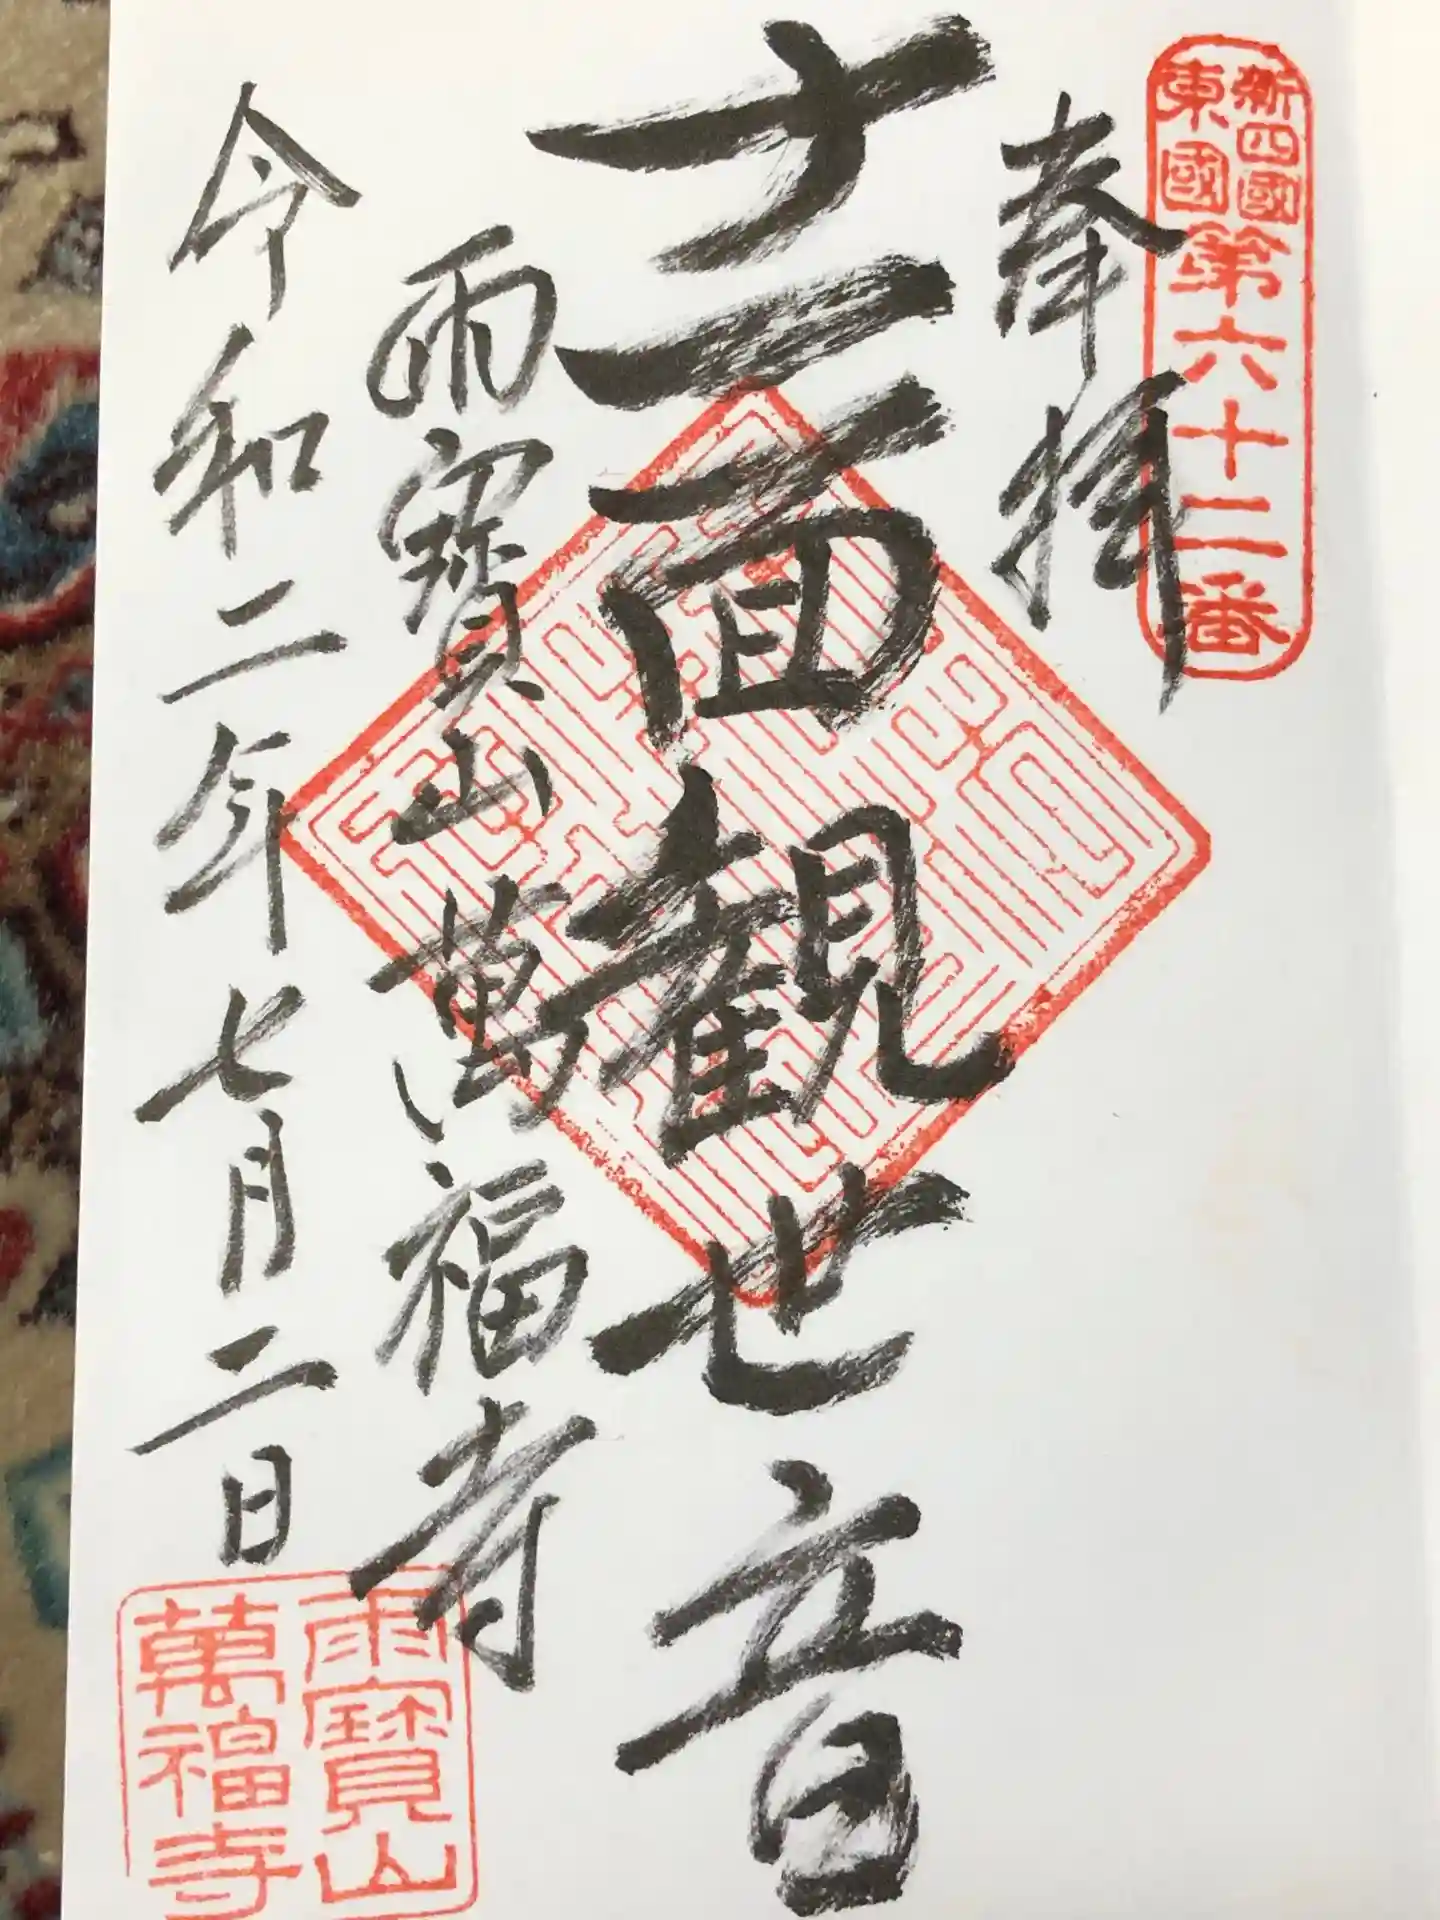 新四國
東國
第六十二番
奉拝
十一面観世音
雨寳山萬福寺
令和二年七月二日
雨寶山
萬福寺